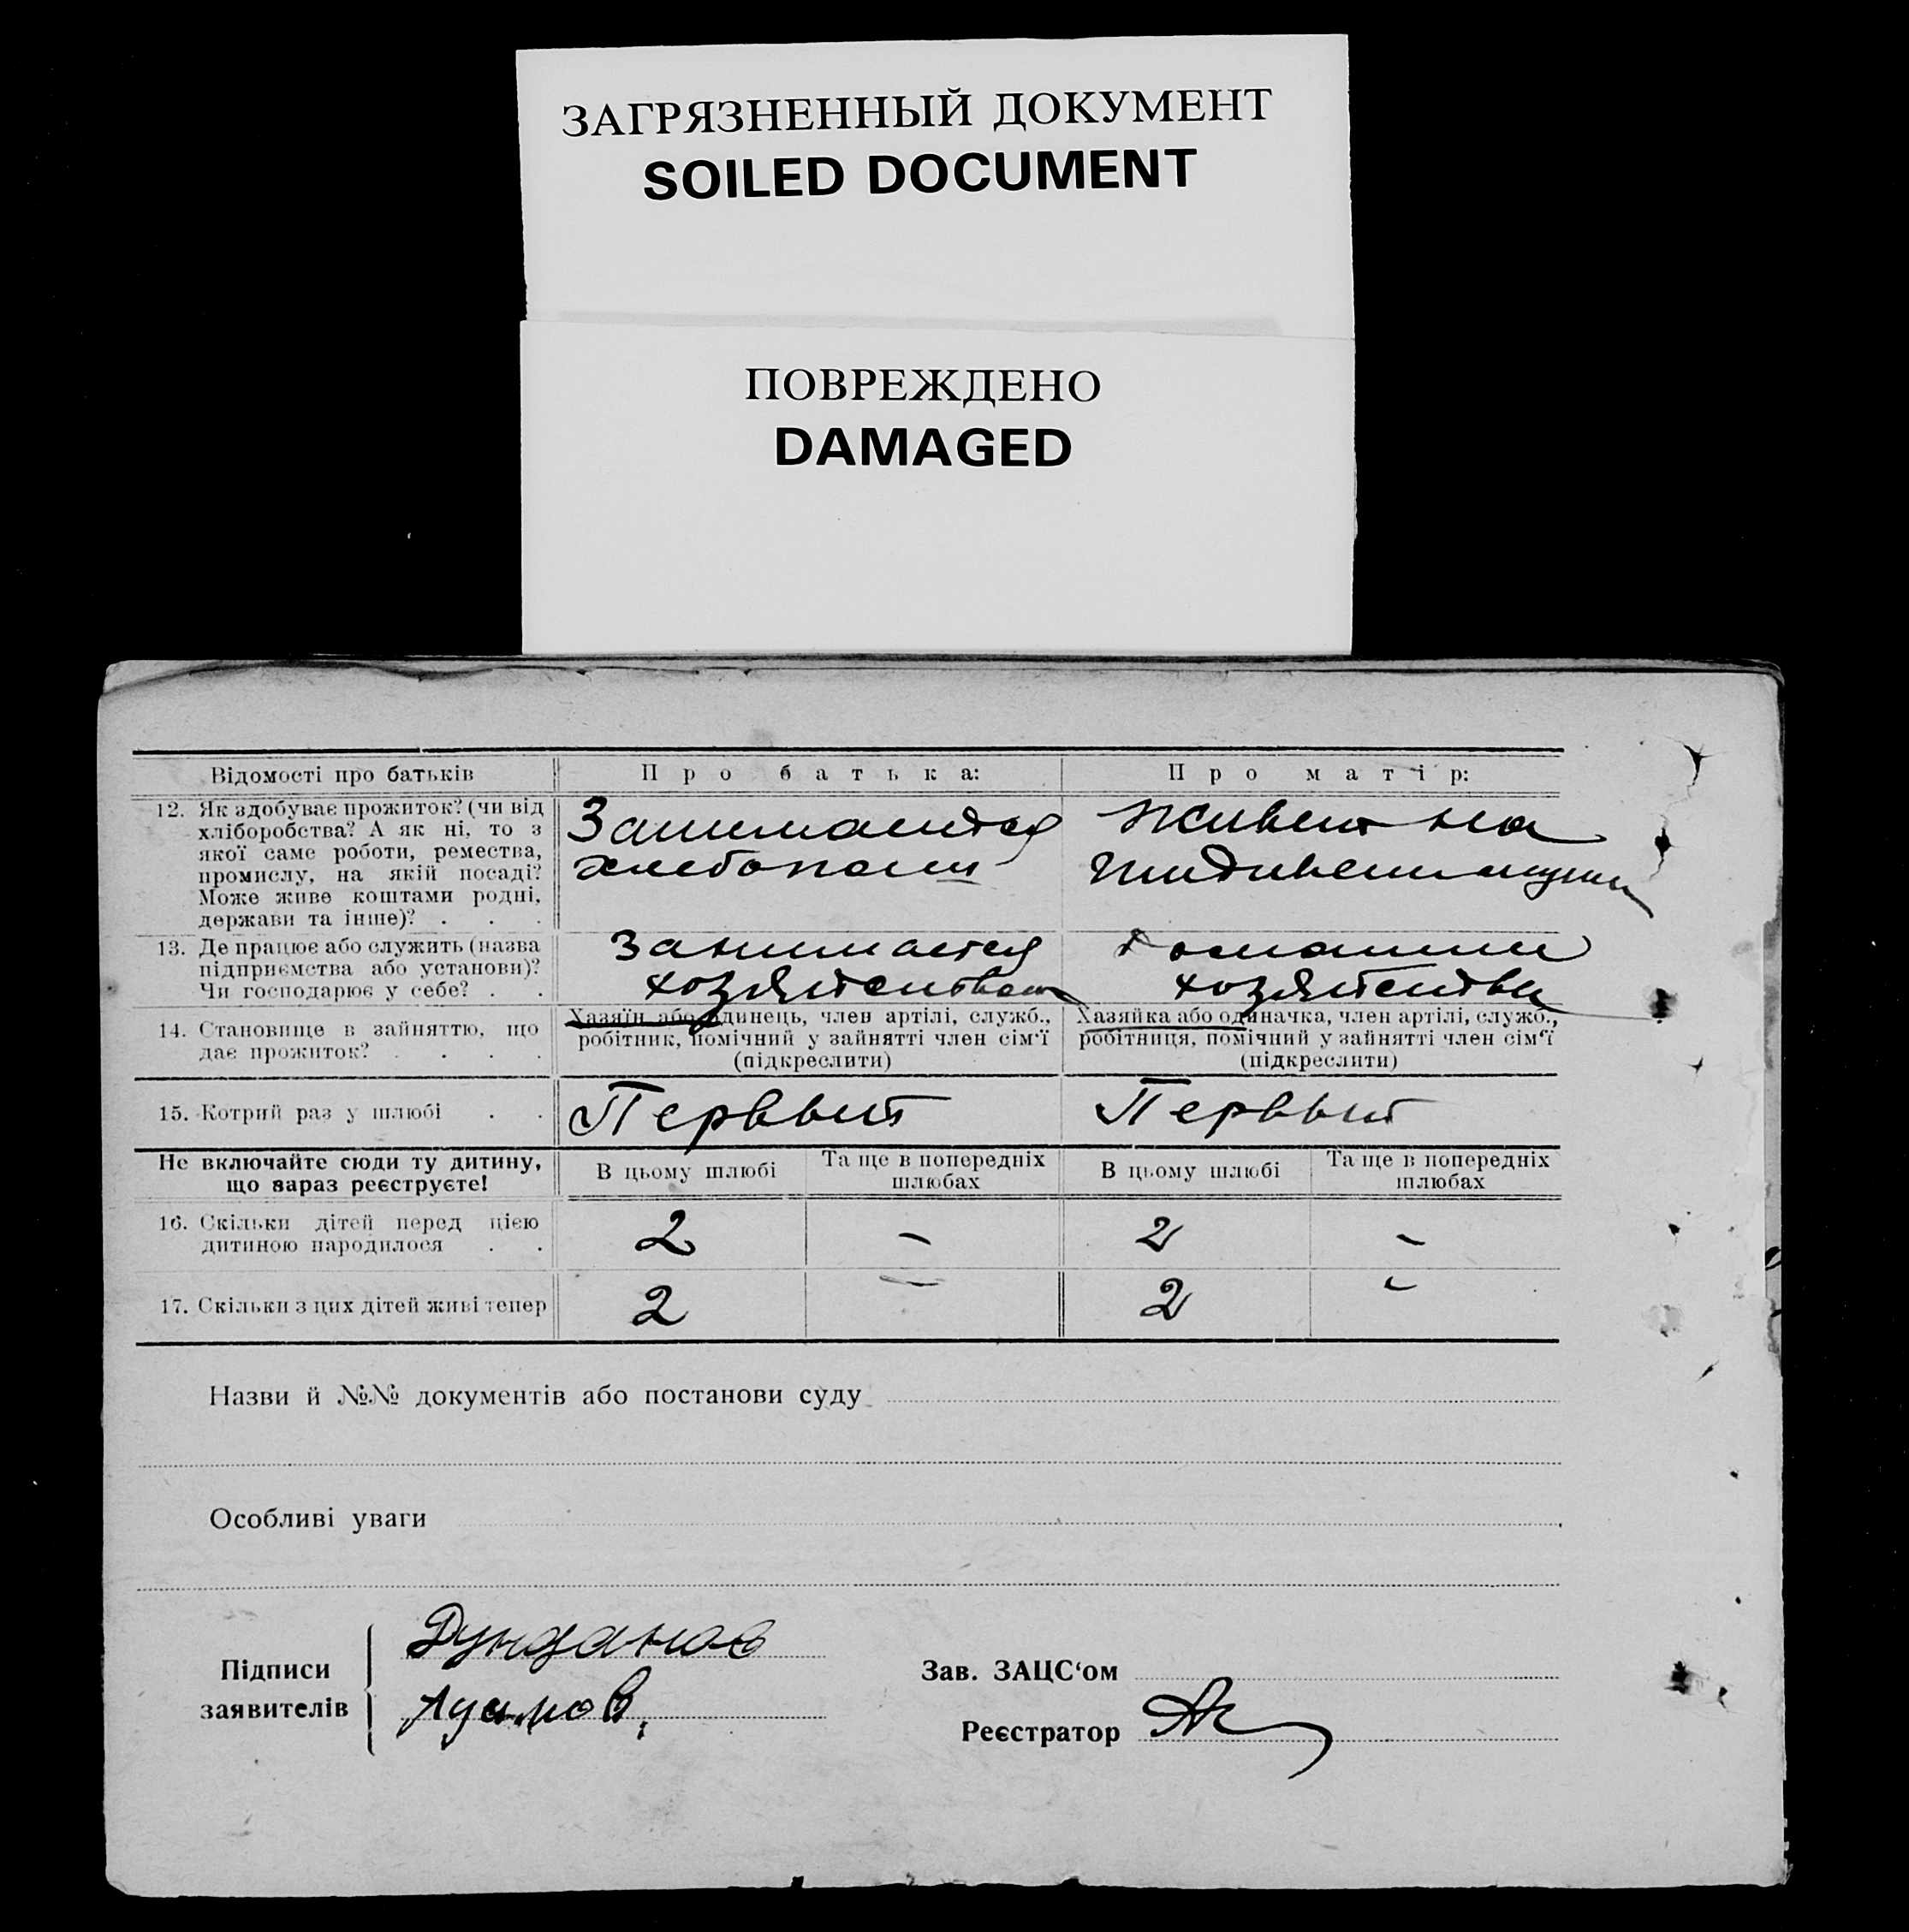 ЗАГРЯЗНЕННЫЙ ДОКУМЕНТ
SOILED DOCUMENT
ПОВРЕЖДЕНО
DAMAGED
Відомості про батьків
Про батька:
Про матір:
12. Як здобуває прожиток? (чи від
хліборобства? А як ні, то з
якої саме роботи, ремества,
промислу, на якій посаді?
Може живе коштами родні,
держави та інше)? . . .
Занимается
хлебопаш
Живет на
иждивении мужа
13. Де працює або служить (назва
підприємства або установи)?
Чи господарює у себе? . .
Занимается
хозяйством
Домашни
хозяйства
14. Становище в зайняттю, що
дає прожиток? . . . .
Хазяїн або одинець, член артілі, служб.,
робітник, помічний у зайнятті член сім'ї
(підкреслити)
Хазяйка або одиначка, член артілі, служб.,
робітниця, помічний у зайнятті член сім'ї
(підкреслити)
15. Котрий раз у шлюбі . .
Первый
Первый
Не включайте сюди ту дитину,
що зараз реєструєте!
В цьому шлюбі
Та ще в попередніх
шлюбах
В цьому шлюбі
Та ще в попередніх
шлюбах
16. Скільки дітей перед цією
дитиною народилося . .
2 – 2 –
17. Скільки з цих дітей живі тепер
2 – 2 –
Назви й №№ документів або постанови суду
Особливі уваги
Підписи
заявителів
Зав. ЗАЦС‘ом
Реєстратор